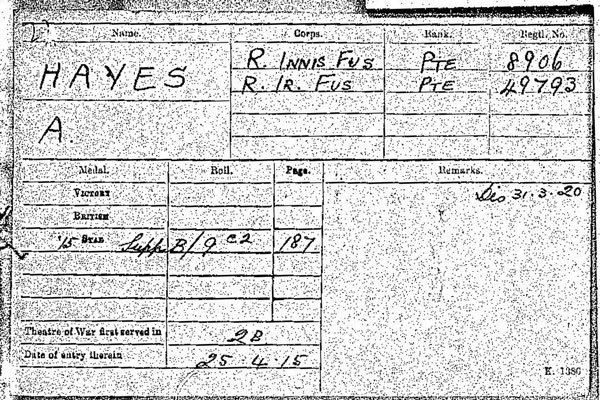 Name. Corps. Rank. Regtl. No.
HAYES R. INNIS FUS PTE 8906
R. IR. FUS PTE 49793
A.
Medal. Roll. Page. Remarks.
VICTORY Dis 31.3.20
BRITISH
'15 STAR Supp B/9 C2 187
Theatre of War first served in 2B
Date of entry therein 25.4.15
K. 1380